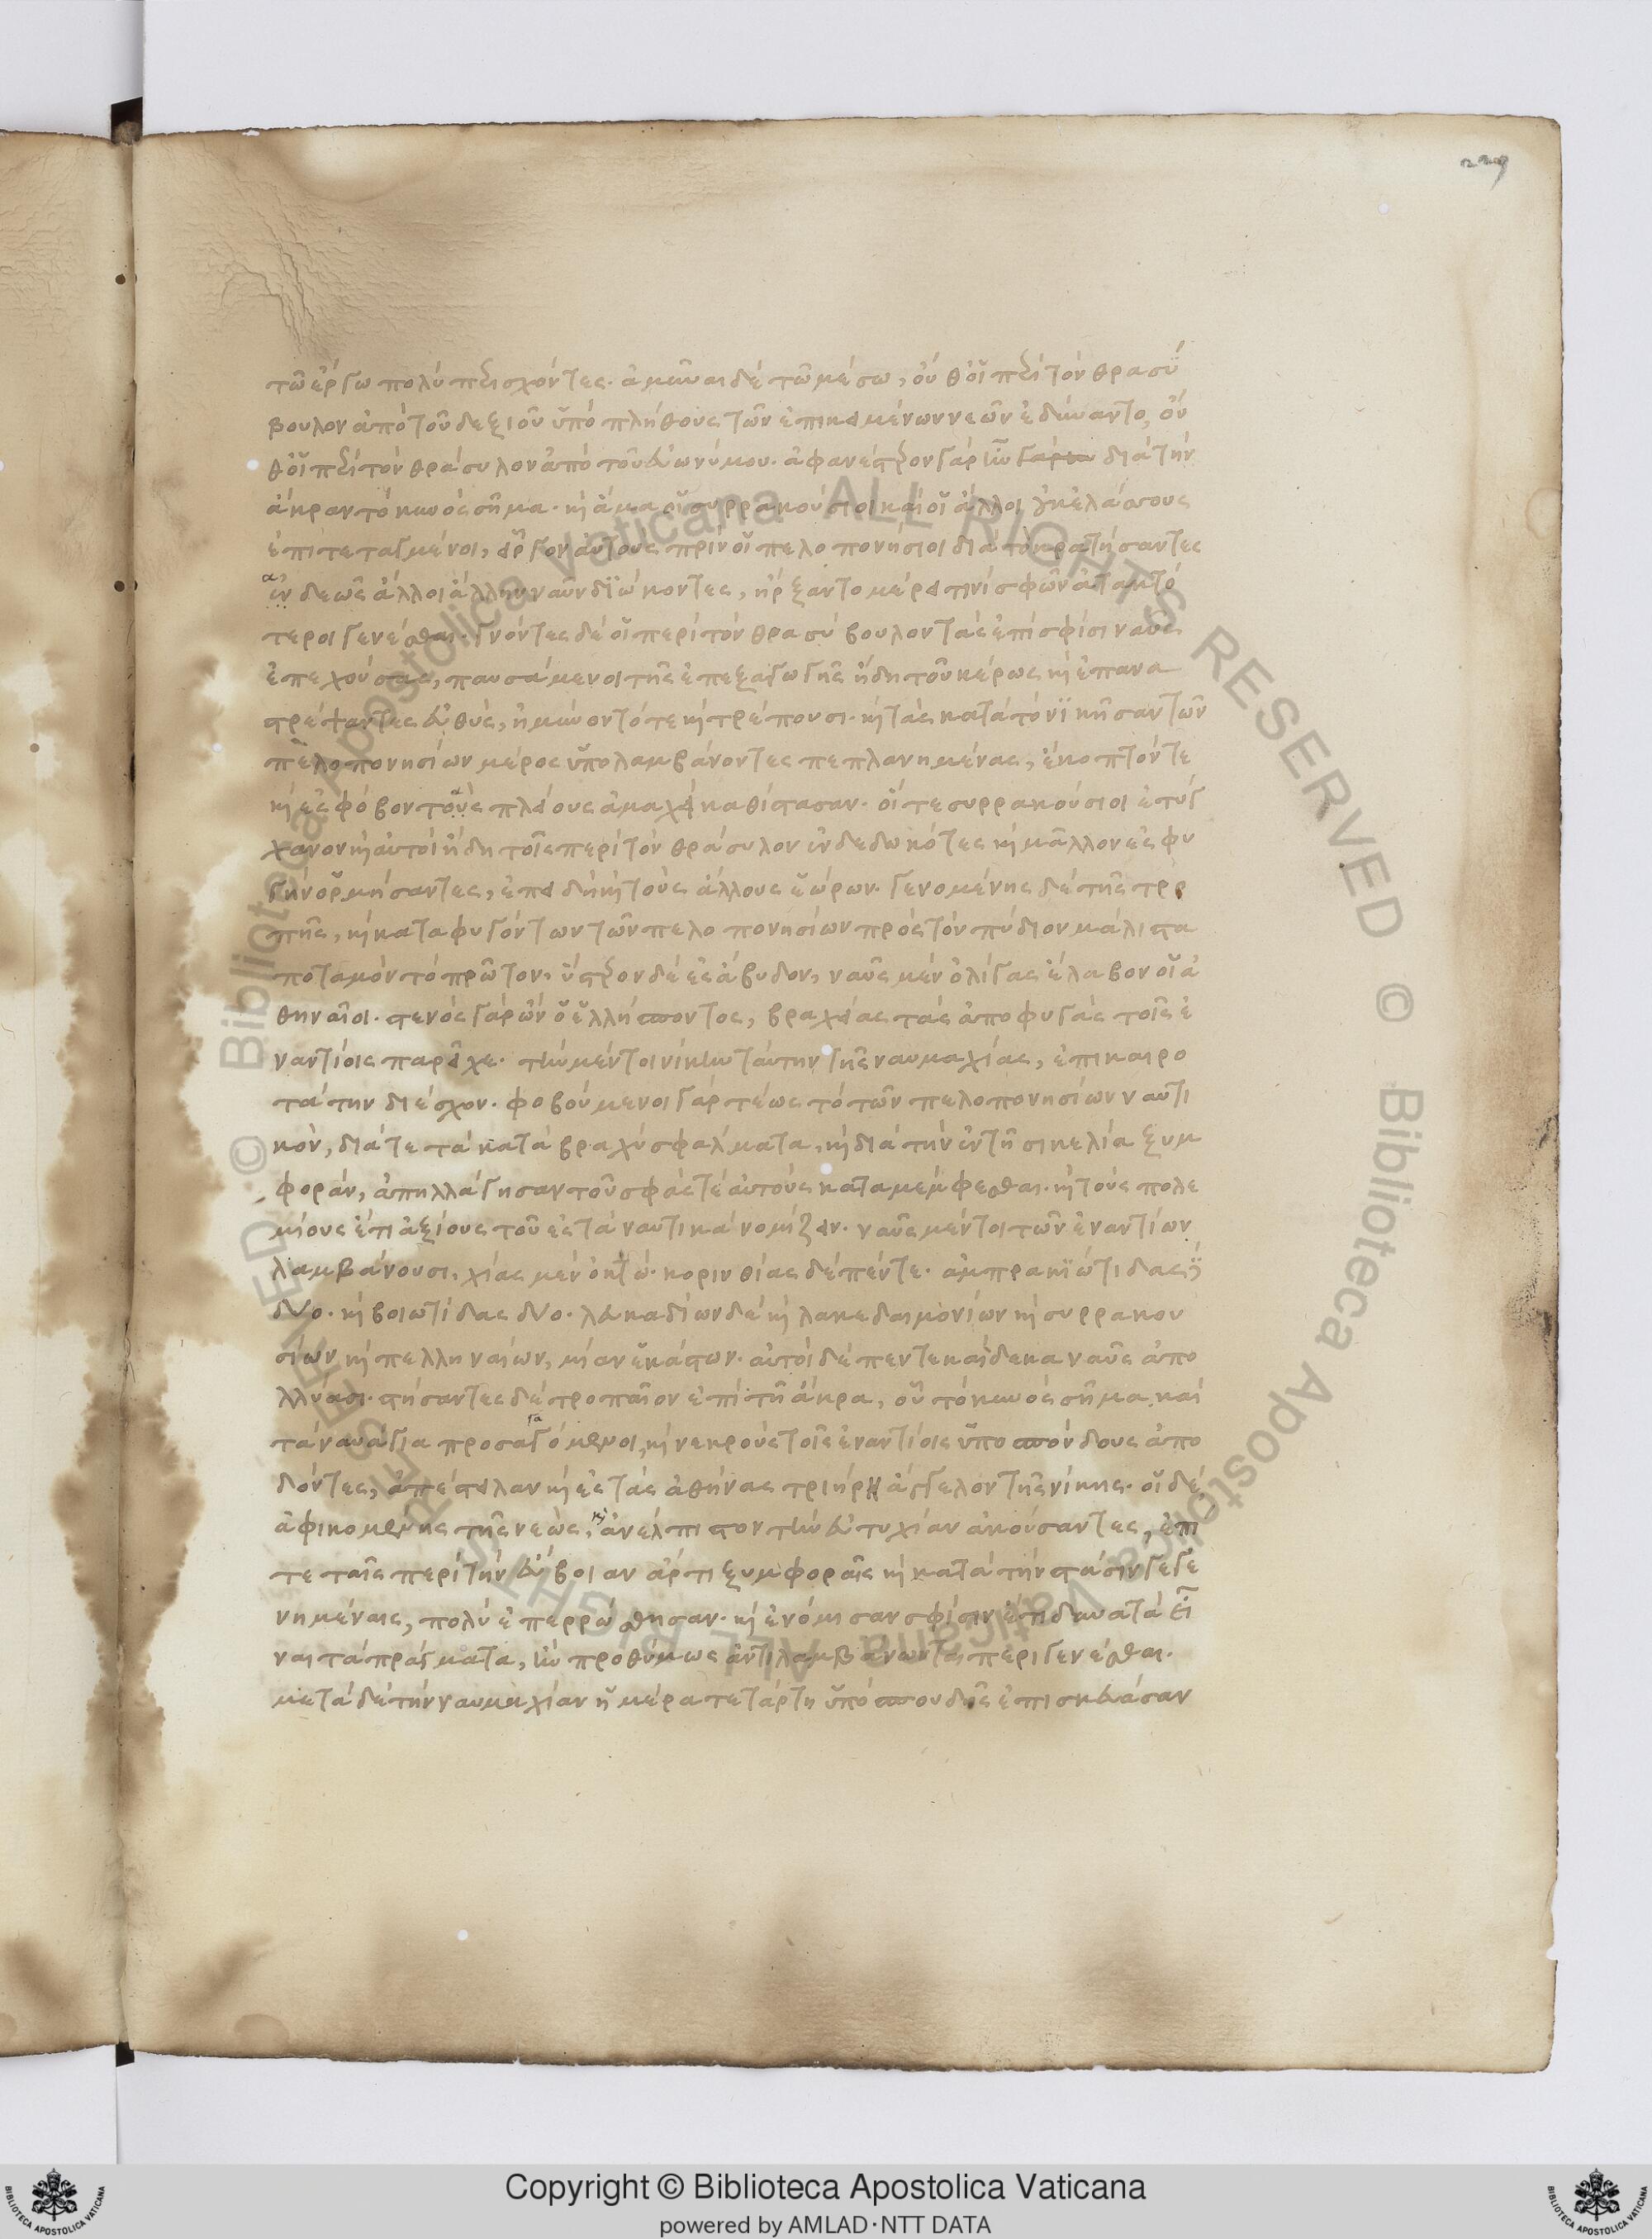 229
τῶ ἔργω πολὺ περισχόντες. ἀμῦναι δὲ τῶ μέσω, οὔθ' οἱ περὶ τὸν θρασύ
βουλον ἀπὸ τοῦ δεξιοῦ ὑπὸ πλήθους τῶν ἐπικειμένων νεῶν ἐδύναντο, οὔ
θ' οἱ περὶ τὸν θράσυλον ἀπὸ τοῦ εὐωνύμου. ἀφανέστερον γὰρ ἦν γὰρ διὰ τὴν
ἄκραν τὸ κυνὸς σῆμα. κὴ ἅμα οἱ συρρακούσιοι καὶ οἱ ἄλλοι οὐκ ἐλάσσους
ἐπιτεταγμένοι, εἶργον αὐτοὺς πρὶν οἱ πελοπονήσιοι διὰ τὸ κρατήσαντες
ἀδεῶς ἄλλοι ἄλλην ναῦν διώκοντες, ἤρξαντο μέρει τινὶ σφῶν ἀτακτό
τεροι γενέσθαι. γνόντες δὲ οἱ περὶ τὸν θρασύβουλον τὰς ἐπὶ σφίσι ναῦς
ἐπεχούσας, παυσάμενοι τῆς ἐπεξαγωγῆς ἤδη τοῦ κέρως κὴ ἐπανα
στρέψαντες εὐθὺς, ἠμύνοντό τε κὴ τρέπουσι. κὴ τὰς κατὰ τὸ νικῆσαν τῶν
πελοπονησίων μέρος ὑπολαμβάνοντες πεπλανημένας, ἔκοπτόν τε
κὴ ἐς φόβον τὰς πλείους ἀμαχεὶ καθίστασαν. οἵ τε συρρακούσιοι ἐτύγ
χανον κὴ αὐτοὶ ἤδη τοῖς περὶ τὸν θράσυλον ἐνδεδωκότες κὴ μᾶλλον ἐς φυ
γὴν ὁρμήσαντες, ἐπειδὴ κὴ τοὺς ἄλλους ἑώρων. γενομένης δὲ τῆς τρο
πῆς, κὴ καταφυγόντων τῶν πελοπονησίων πρὸς τὸν πύδιον μάλιστα
ποταμὸν τὸ πρῶτον, ὕστερον δὲ ἐς ἄβυδον, ναῦς μὲν ὀλίγας ἔλαβον οἱ ἀ
θηναῖοι. στενὸς γὰρ ὢν ὁ ἑλλήσποντος, βραχείας τὰς ἀποφυγὰς τοῖς ἐ
ναντίοις παρεῖχε. τὴν μέντοι νίκην ταύτην τῆς ναυμαχίας, ἐπικαιρο
τάτην διέσχον. φοβούμενοι γὰρ τέως τὸ τῶν πελοπονησίων ναυτι
κὸν, διά τε τὰ κατὰ βραχὺ σφάλματα, κὴ διὰ τὴν ἐν τῆ σικελία ξυμ
φορὰν, ἀπηλλάγησαν τοῦ σφᾶς τὲ αὐτοὺς καταμέμφεσθαι. κὴ τοὺς πολε
μίους ἔτι ἀξίους τοῦ ἐς τὰ ναυτικὰ νομίζειν. ναῦς μέντοι τῶν ἐναντίων
λαμβάνουσι, χίας μὲν ὀκτώ. κορινθίας δὲ πέντε. ἀμπρακιώτιδας
δύο. κὴ βοιωτίδας δύο. λευκαδίων δὲ κὴ λακεδαιμονίων κὴ συρρακου
σίων κὴ πελληναίων, μίαν ἑκάστων. αὐτοὶ δὲ πεντεκαίδεκα ναῦς ἀπο
λλύασι. στήσαντες δὲ τροπαῖον ἐπὶ τῆ ἄκρα, οὗ τὸ κυνὸς σῆμα, καὶ
τὰ ναυάγια προσαγαγόμενοι, κὴ νεκροὺς τοῖς ἐναντίοις ὑποσπόνδους ἀπο
δόντες, ἀπέστειλαν κὴ ἐς τὰς ἀθήνας τριήρη ἄγγελον τῆς νίκης. οἱ δὲ
ἀφικομένης τῆς νεὼς, κὴ ἀνέλπιστον τὴν εὐτυχίαν ἀκούσαντες, ἐπί
τε ταῖς περὶ τὴν εὔβοιαν ἄρτι ξυμφοραῖς κὴ κατὰ τὴν στάσιν γεγε
νημέναις, πολὺ ἐπερρώσθησαν. κὴ ἐνόμισαν σφίσιν ἔτι δυνατὰ εἶ
ναι τὰ πράγματα, ἢν προθύμως ἀντιλαμβάνωνται περιγενέσθαι.
μετὰ δὲ τὴν ναυμαχίαν ἡμέρα τετάρτη ὑπὸ σπουδῆς ἐπισκευάσαν
Copyright © Biblioteca Apostolica Vaticana
powered by AMLAD·NTT DATA